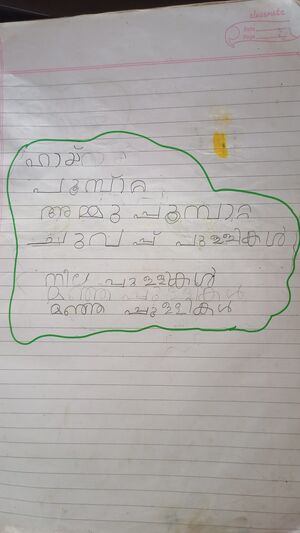 classmate
Date
Page
ഹായ്
പൂമ്പാറ്റ
അമ്മു പൂമ്പാറ്റ
ചുവപ്പ് പുള്ളികൾ
നീല പുള്ളികൾ
മഞ്ഞ പുള്ളികൾ
മഞ്ഞ പുള്ളികൾ